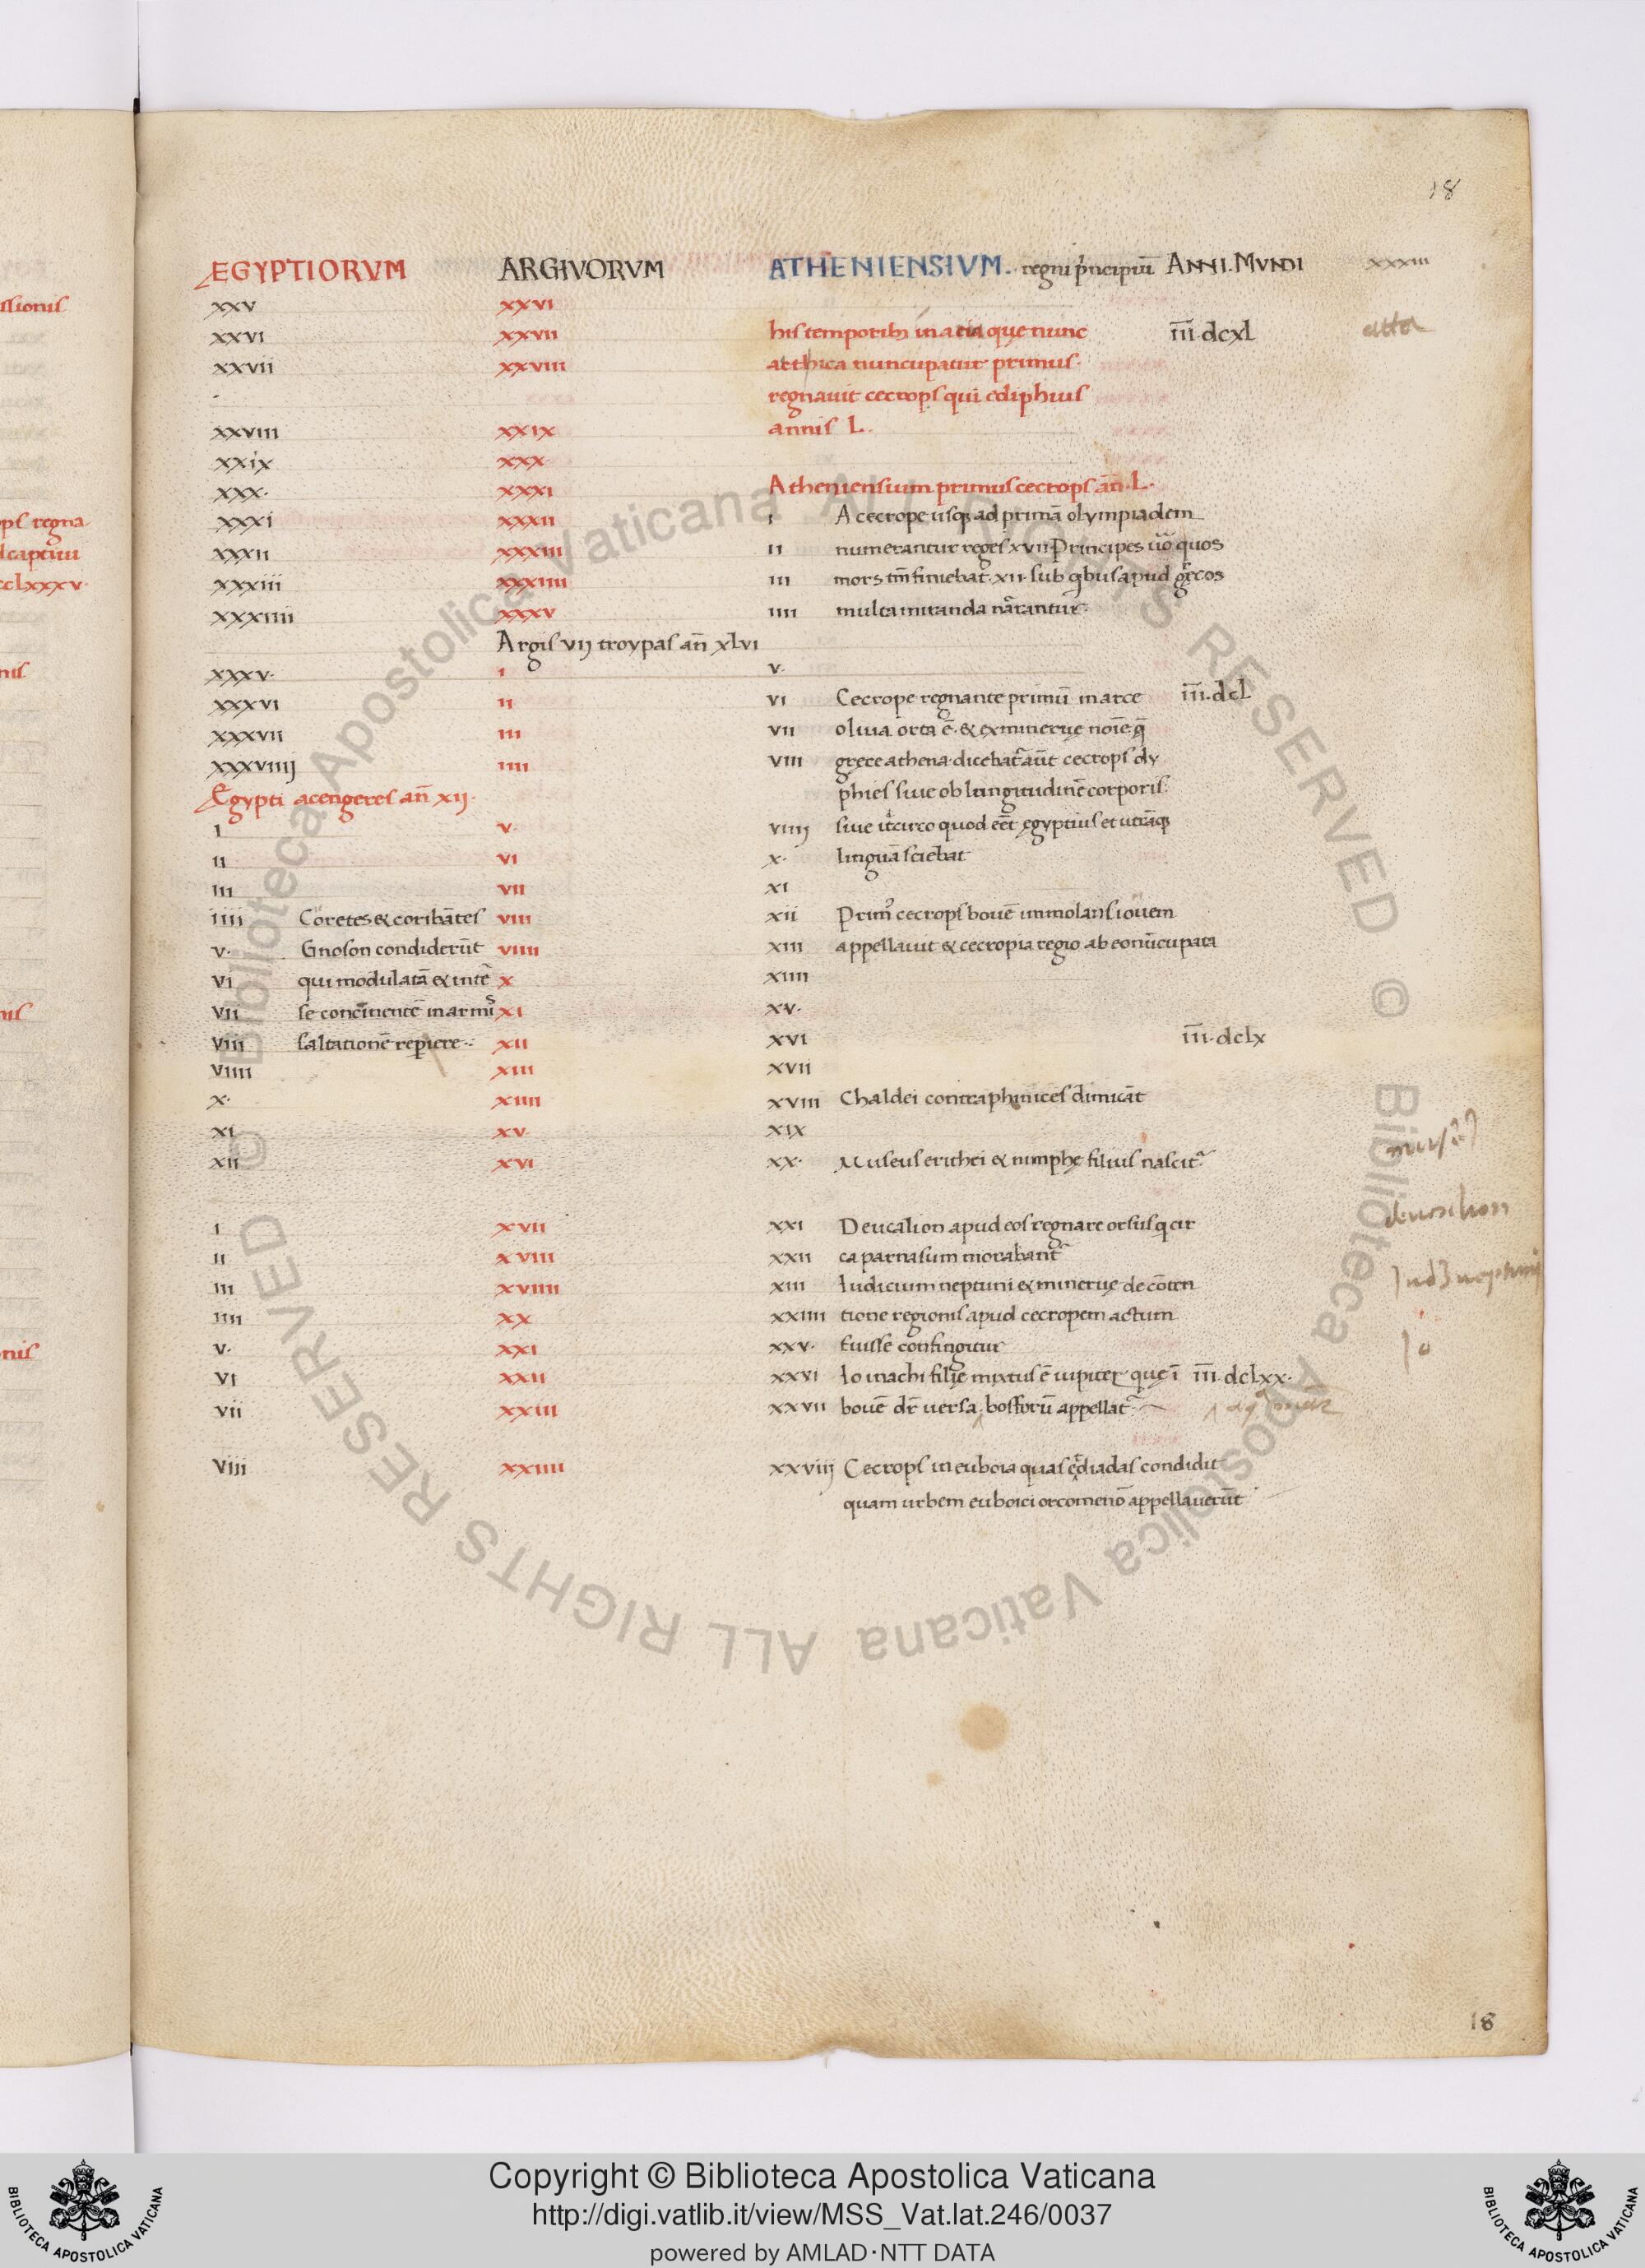 18
EGYPTIORVM ARGIVORVM ATHENIENSIVM. regni p̃ncipiũ ANNI. MVNDI xxxiii
xxv xxvi
xxvi xxvii his temporib; in acta que nunc īīī.dcxl
xxvii xxviii atthica nuncupatur primus.
regnauit cecrops qui ediphius
xxviii xxix annis L.
xxix xxx
xxx. xxxi Atheniensium primus cecrops añ. L.
xxxi xxxii i A cecrope usq; ad primā olympiadem
xxxii xxxiii ii numerantur reges xvii Principes uõ quos
xxxiii xxxiiii iii mors tm̄ finiebat. xii. sub qbus apud grecos
xxxiiii xxxv iiii multa miranda narrantur.
Argis vij troypas añ xlvi
xxxv. i v.
xxxvi ii vi Cecrope regnante primū in arce īīī.dcl
xxxvii iii vii oliua orta ē. & ex minerue noīe q̄
xxxviiij iiii viii grece athena dicebat aut̄ cecrops dy
Egypti acengeres añ xij. phies siue ob longitudinē corporis.
i v. viiij siue idcirco quod eēt egyptius et utrāq;
ii vi x. linguā sciebat
iii vii xi
iiii Coretes & coribātes viii xii Prim' cecrops bouē immolans iouem
v. Gnoson condiderūt viiii xiii appellauit & cecropia regio ab eo nūcupata
vi qui modulatā & inte x xiiii
vii se concinentē in armis xi xv.
viii saltationē repiere. xii xvi īīī.dclx
viiii xiii xvii
x. xiiii xviii Chaldei contra phinices dimicāt
xi xv xix
xii xvi xx. Museus erithei & nimphe filius nascit
i xvii xxi Deucalion apud eos regnare orsus q cir
ii xviii xxii ca parnasum morabant
iii xviiii xiii Iudicium neptuni & minerue de cōten
iiii xx xxiiii tione regionis apud cecropem actum
v. xxi xxv. fuisse confingitur
Io
vi xxii xxvi Io inachi filie mixtus ē iupiter que ī īīī.dclxx.
vii xxiii xxvii bouē dr̄ uersa bosforū appellat
viii xxiiii xxviij Cecrops in euboia quas ediadas condidit
quam urbem euboici orcomenō appellauerūt
18
© Biblioteca Apostolica Vaticana ALL RIGHTS RESERVED © Biblioteca Apostolica Vaticana ALL RIGHTS RESERVED
Copyright © Biblioteca Apostolica Vaticana
http://digi.vatlib.it/view/MSS_Vat.lat.246/0037
powered by AMLAD·NTT DATA
BIBLIOTECA APOSTOLICA VATICANA
BIBLIOTECA APOSTOLICA VATICANA